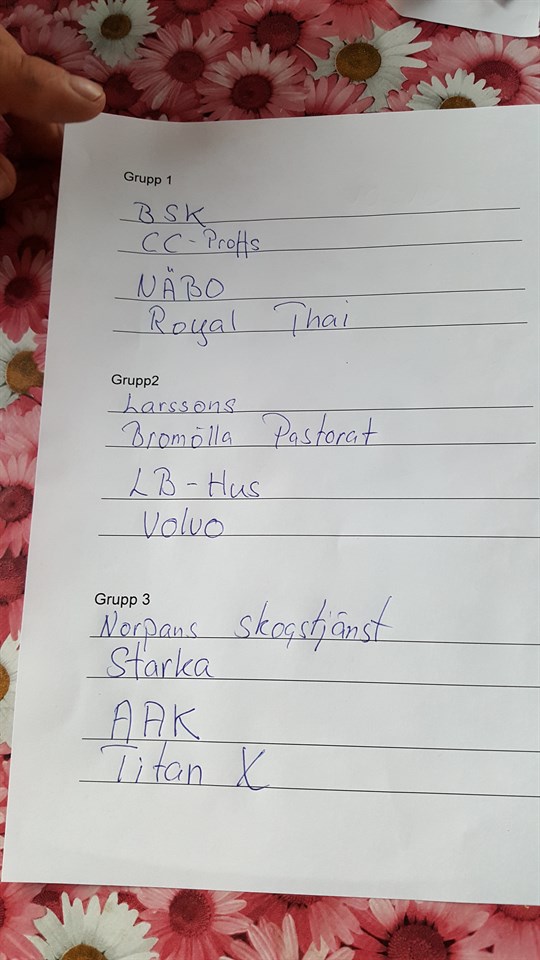 Grupp 1
BSK
CC-Proffs
NÄBO
Royal Thai
Grupp2
Larssons
Bromölla Pastorat
LB-Hus
Volvo
Grupp 3
Norpans skogstjänst
Starka
AAK
Titan X